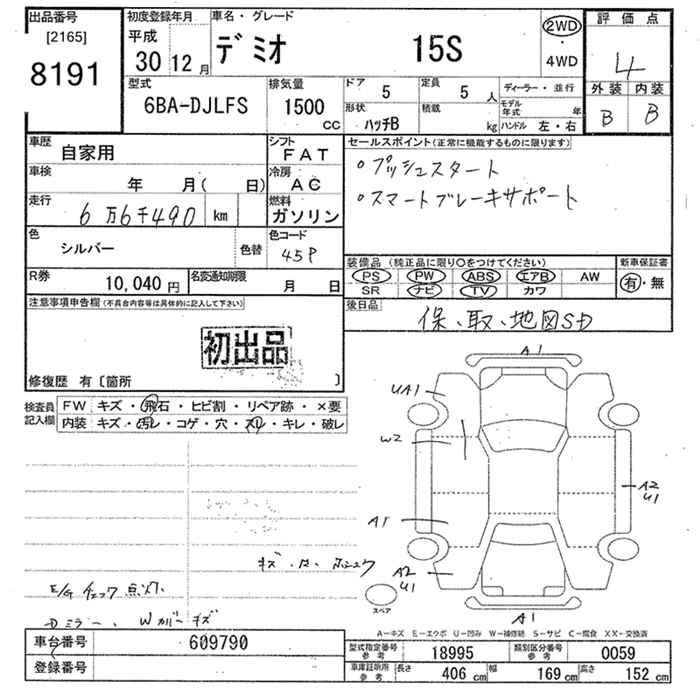 出品番号
[2165]
8191
初度登録年月
平成
30 12月
車名・グレード
デミオ 15S
2WD
・
4WD
評価点
4
外装 内装
B B
型式
6BA-DJLFS
排気量
1500
CC
ドア 5
定員 5 人
形状 ハッチB
積載 kg
ディーラー・並行
モデル年式 年
ハンドル 左・右
車歴 自家用
シフト FAT
車検 年 月( 日)
冷房 AC
走行 6万6千490 km
燃料 ガソリン
色 シルバー 色替
色コード 45P
R券 10,040 円
名変通知期限 月 日
セールスポイント(正常に機能するものに限ります)
。プッシュスタート
。スマートブレーキサポート
装備品(純正品に限り○をつけてください)
PS PW ABS エアB AW
SR ナビ TV カワ
新車保証書
有・無
後日品
保、取、地図SD
注意事項申告欄(不具合内容等は具体的に記入して下さい)
初出品
修復歴 有〔箇所 〕
検査員記入欄
FW キズ・飛石・ヒビ割・リペア跡・×要
内装 キズ・汚レ・コゲ・穴・スレ・キレ・破レ
E/G チェック点灯、
Dミラー、Wカバーキズ
A1
UA1
W2
A1
A2
U1
A2
U1
A1
スペア
A-キズ E-エクボ U-凹ミ W-補修跡 S-サビ C-腐食 XX-交換済
車台番号 609790
登録番号
型式指定番号参考 18995
類別区分番号参考 0059
車庫証明所参考 長さ 406 cm 幅 169 cm 高さ 152 cm